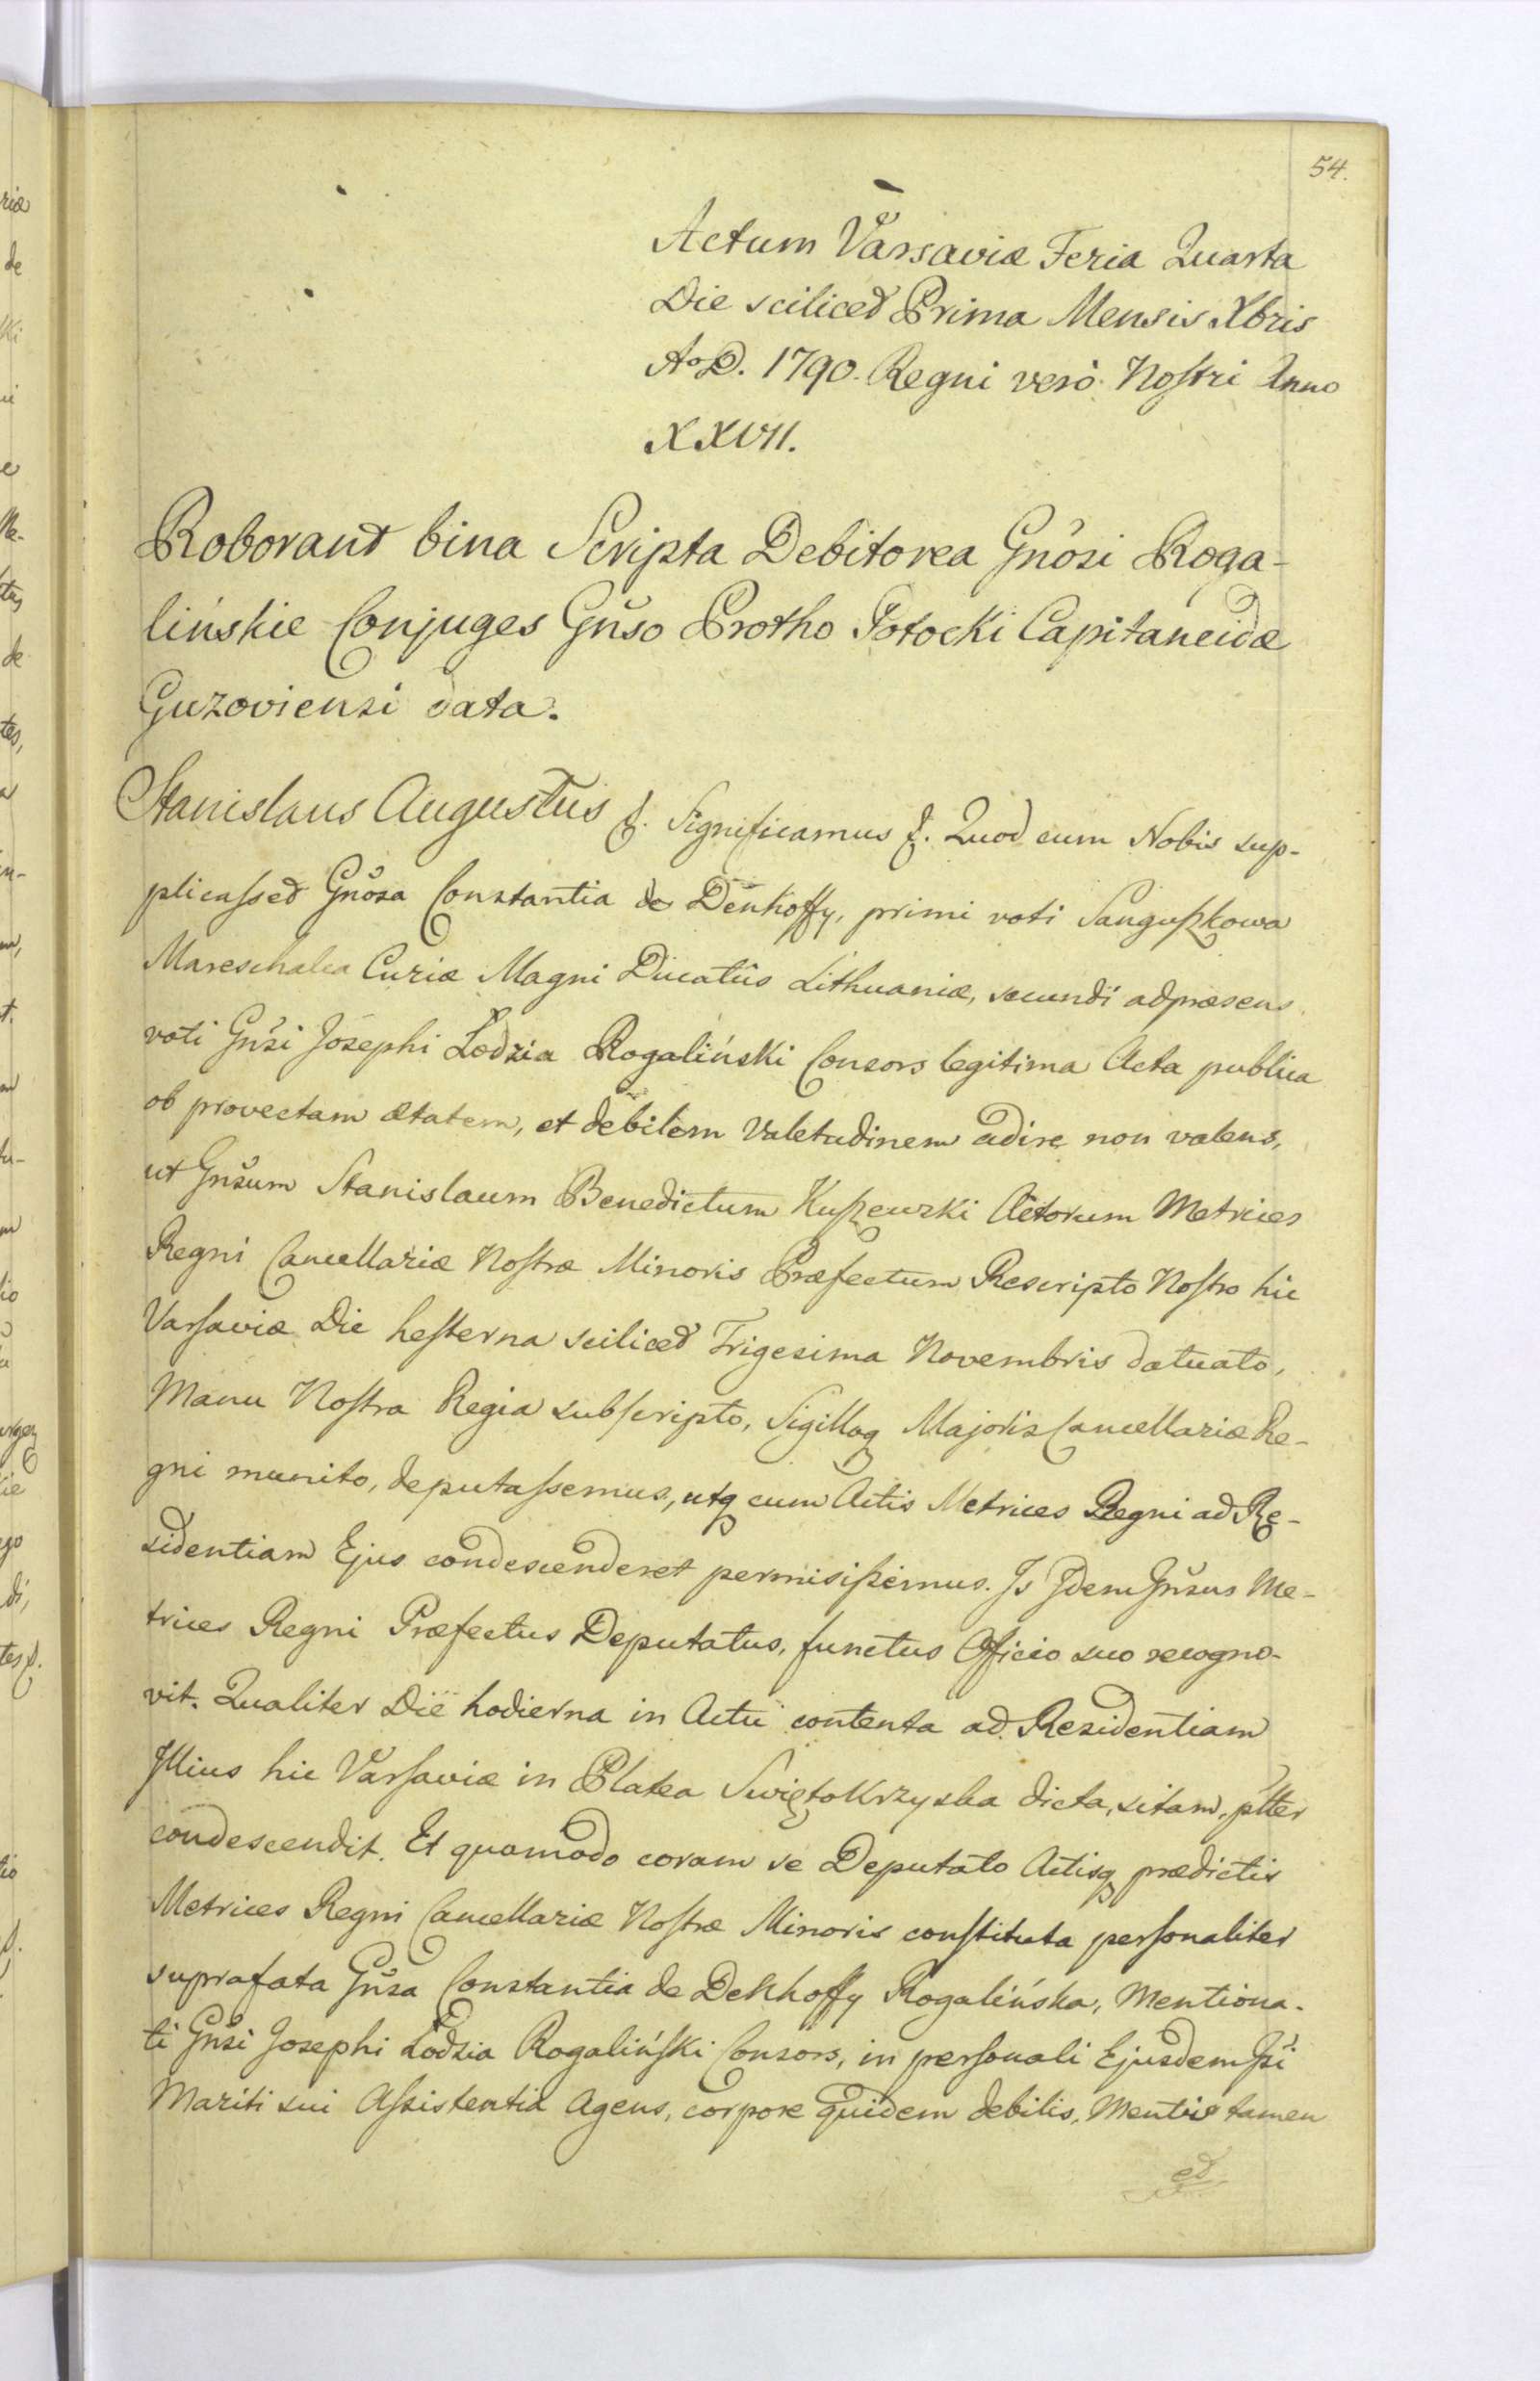 54.
Actum Varsaviæ Feria Quarta
Die sciliced Prima Mensis Xbris
AoD. 1790. Regni verò Noſtri Anno
XXVII.
Roborant bina Scripta Debitorea Gnosi Roga-
lińskie Conjuges Gnso Protho Potocki Capitaneidæ
Guzoviensi data.
Stanislaus Augustus &. Significamus &. Quod cum Nobis sup-
plicaſsed Gnosa Constantia de Denhoffy, primi voti Sanguſzkowa
Mareschalca Curiæ Magni Ducatûs Lithuaniæ, secundi adpræsens
voti Gnsi Josephi Łodzia Rogaliński Consors legitima Acta publica
ob provectam ætatem, et debilem Valetudinem adire non valens,
ut Gnsum Stanislaum Benedictum Kuſzewski Actorum Metrices
Regni Cancellariæ Noſtræ Minoris Præfectum Rescripto Noſtro hic
Varſaviæ Die heſterna sciliced Trigesima Novembris datuato,
Manu Noſtra Regia subſcripto, Sigilloq Majoris Cancellariæ Re-
gni munito, deputaſsemus, utq cum Actis Metrices Regni ad Re-
sidentiam Ejus condescenderet permisiſsemus. Is Idem Gnsus Me-
trices Regni Præfectus Deputatus, functus Officio suo recogno-
vit. Qualiter Die hodierna in Actu contenta ad Residentiam
Illius hic Varſaviæ in Platea Swiętokrzyska dicta, sitam, ptter
condescendit. Et quomodo coram se Deputato Actisq prædictis
Metrices Regni Cancellariæ Noſtræ Minoris conſtituta perſonaliter
suprafata Gnsa Constantia de Dekhoffy Rogalińska, Mentiona-
ti Gnsi Josephi Łodzia Rogalińſki Consors, in perſonali Ejusdem Gsi
Mariti sui Aſsistentia Agens, corpore quidem debilis, Mentis tamen
ed